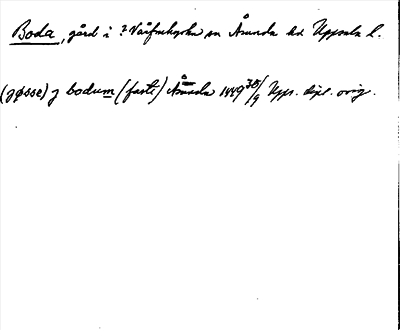 Boda, gård i ? Vaksala sn Ånunda hd Uppsala l.
(jøsse) j bodum (faste) Ånunda 1449 30/9 Upps. dipl. orig.